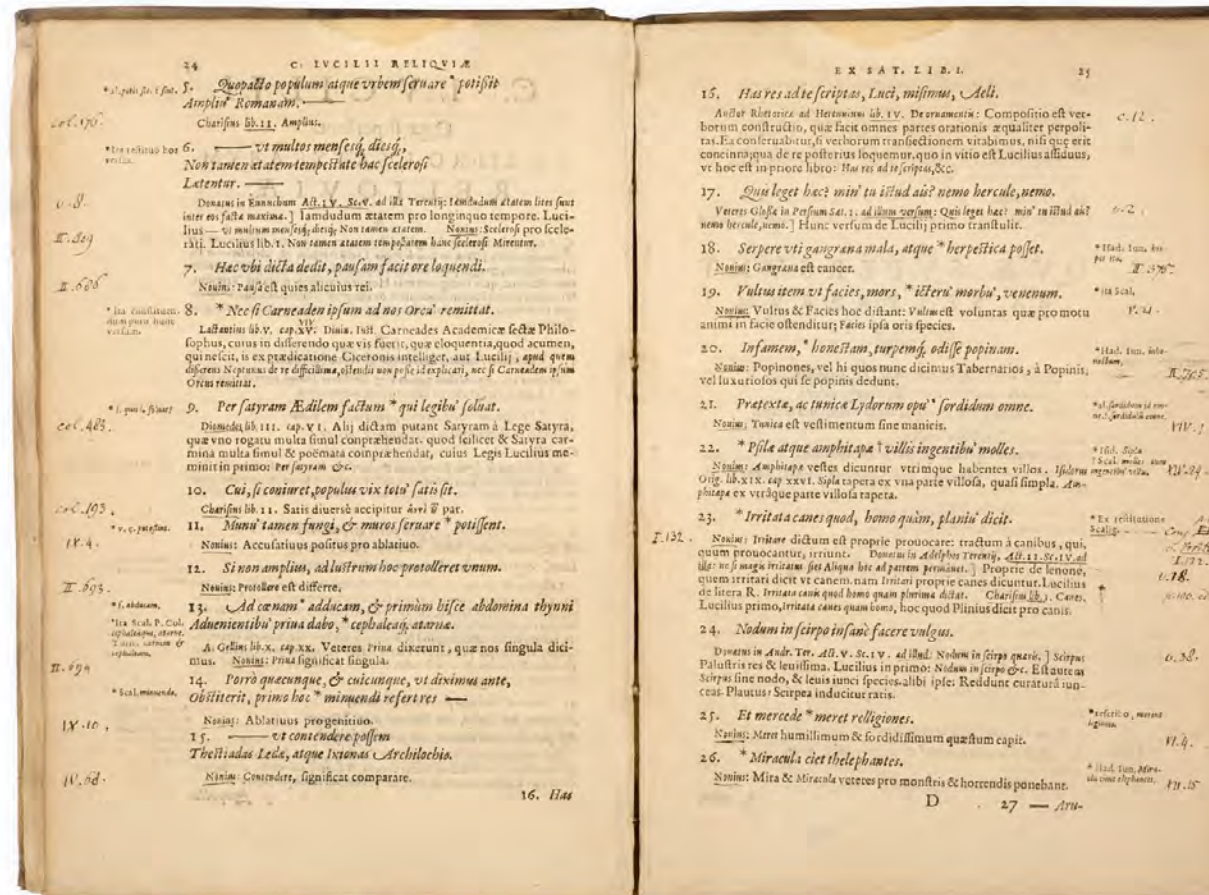 24 C. IVCILII RELIQVIÆ
5. Quopacto populum atque vrbem seruare * potißit
Ampliu' Romanam. —
col. 176.
Charisius lib. II. Amplius.
6. — vt multos mensesq́;, diesq́;,
* Ita restituo hos
versus.
Non tamen ætatem tempestate hac scelerosi
Lætentur. —
v. 8.
Donatus in Eunuchum Act. IV. Sc. V. ad illa Terentij: Iamdudum ætatem lites sunt
inter eos factæ maximæ. ] Iamdudum ætatem pro longinquo tempore. Luci-
lius — vt multum mensesq́; diesq́; Non tamen ætatem. Nonius: Scelerosi pro scele-
II. 809
rati. Lucilius lib. 1. Non tamen ætatem tempestatem hanc scelerosi Mirentur.
7. Hæc vbi dicta dedit, pausam facit ore loquendi.
II. 686
Nonius: Pausa est quies alicuius rei.
8. * Nec si Carneaden ipsum ad nos Orcu' remittat.
* Ita constituen-
dum puto hunc
versum.
Lactantius lib. V. cap. XV. Diuin. Inst. Carneades Academicæ sectæ Philo-
sophus, cuius in disserendo quæ vis fuerit, quæ eloquentia, quod acumen,
qui nescit, is ex prædicatione Ciceronis intelliget, aut Lucilij, apud quem
disserens Neptunus de re difficillima, ostendit non posse id explicari, nec si Carneadem ipsum
Orcus remittat.
9. Per satyram Ædilem factum * qui legibu' soluat.
col. 483.
Diomedes lib. III. cap. VI. Alij dictam putant Satyram à Lege Satyra,
quæ vno rogatu multa simul conpræhendat. quod scilicet & Satyra car-
mina multa simul & poëmata compræhendat, cuius Legis Lucilius me-
minit in primo: Per satyram &c.
10. Cui, si coniuret, populus vix totu' satis sit.
col. 193.
Charisius lib. II. Satis diuersè accipitur ἀντὶ τῦ par.
11. Munu' tamen fungi, & muros seruare * potissent.
IX. 4.
Nonius: Accusatiuus positus pro ablatiuo.
12. Si non amplius, ad lustrum hoc protolleret vnum.
II. 693.
Nonius: Protollere est differre.
* f. abducam.
13. Ad cœnam * adducam, & primùm hisce abdomina thynni
Aduenientibu' priua dabo, * cephaleaq́; atarnæ.
* Ita Scal. P. Col.
A. Gellius lib. X. cap. XX. Veteres Priua dixerunt, quæ nos singula dici-
II. 694
mus. Nonius: Priua significat singula.
14. Porrò quæcunque, & cuicunque, vt diximus ante,
* Scal. minuenda.
Obstiterit, primo hoc * minuendi refert res —
IX. 10.
Nonius: Ablatiuus pro genitiuo.
15. — vt contendere possem
Thestiadas Ledæ, atque Ixionas Archilochio.
IV. 68.
Nonius: Contendere, significat comparare.
16. Has
EX SAT. LIB. I. 25
16. Has res ad te scriptas, Luci, misimus, Aeli.
c. 12.
Auctor Rhetoricæ ad Herennium lib. IV. De ornamentis: Compositio est ver-
borum constructio, quæ facit omnes partes orationis æqualiter perpoli-
tas. Ea conseruabitur, si verborum transiectionem vitabimus, nisi quę erit
concinna; qua de re posterius loquemur. quo in vitio est Lucilius assiduus,
vt hoc est in priore libro: Has res ad te scriptas, &c.
17. Quis leget hæc? min' tu istud ais? nemo hercule, nemo.
v. 2.
Veteres Glossæ in Persium Sat. I. ad illum versum: Quis leget hæc? min' tu istud ais?
nemo hercule, nemo. ] Hunc versum de Lucilij primo transtulit.
18. Serpere vti gangræna mala, atque * herpestica posset.
II. 376.
Nonius: Gangræna est cancer.
19. Vultus item vt facies, mors, * icteru' morbu', venenum.
* ita Scal.
V. 21.
Nonius: Vultus & Facies hoc distant: Vultus est voluntas quæ pro motu
animi in facie ostenditur; Facies ipsa oris species.
20. Infamem, * honestam, turpemq́; odisse popinam.
* Had. Iun. inho-
nestam.
II. 705.
Nonius: Popinones, vel hi quos nunc dicimus Tabernarios, à Popinis,
vel luxuriosos qui se popinis dedunt.
21. Prætextæ, ac tunicæ Lydorum opu' * sordidum omne.
Nonius: Tunica est vestimentum sine manicis.
22. * Psilæ atque amphitapæ † villis ingentibu' molles.
* Isid. Sipla
† Scal. molles cum
ingentibu' villis.
XIV. 24.
Nonius: Amphitapæ vestes dicuntur vtrimque habentes villos. Isidorus
Orig. lib. XIX. cap XXVI. Sipla tapeta ex vna parte villosa, quasi simpla. Am-
phitapa ex vtràque parte villosa tapeta.
23. * Irritata canes quod, homo quàm, planiu' dicit.
* Ex restitutione
Scalig.
I. 132.
Nonius: Irritare dictum est propriè prouocare: tractum à canibus, qui,
quum prouocantur, irriunt. Donatus in Adelphos Terentij, Act. II. Sc. IV. ad
illa: ne si magis irritatus siet Aliqua hoc ad patrem permanet. ] Propriè de lenone,
quem irritari dicit vt canem. nam Irritari propriè canes dicuntur. Lucilius
v. 18.
de litera R. Irritata canis quod homo quam plurima dictat. Charisius lib. I. Canes.
Lucilius primo, Irritata canes quam homo, hoc quod Plinius dicit pro canis.
24. Nodum in scirpo insanè facere vulgus.
v. 38.
Donatus in Andr. Ter. Act. V. Sc. IV. ad illud: Nodum in scirpo quæris. ] Scirpus
Palustris res & leuissima. Lucilius in primo: Nodum in scirpo &c. Est autem
Scirpus sine nodo, & leuis iunci species. alibi ipse: Reddunt curatura iun-
ceas. Plautus: Scirpea inducitur ratis.
25. Et mercede * meret relligiones.
VI. 4.
Nonius: Meret humillimum & sordidissimum quæstum capit.
26. * Miracula ciet thelephantes.
* Had. Iun. Mira-
cula ciens elephantes.
XII. 15
Nonius: Mira & Miracula veteres pro monstris & horrendis ponebant.
D 27 — Aru-